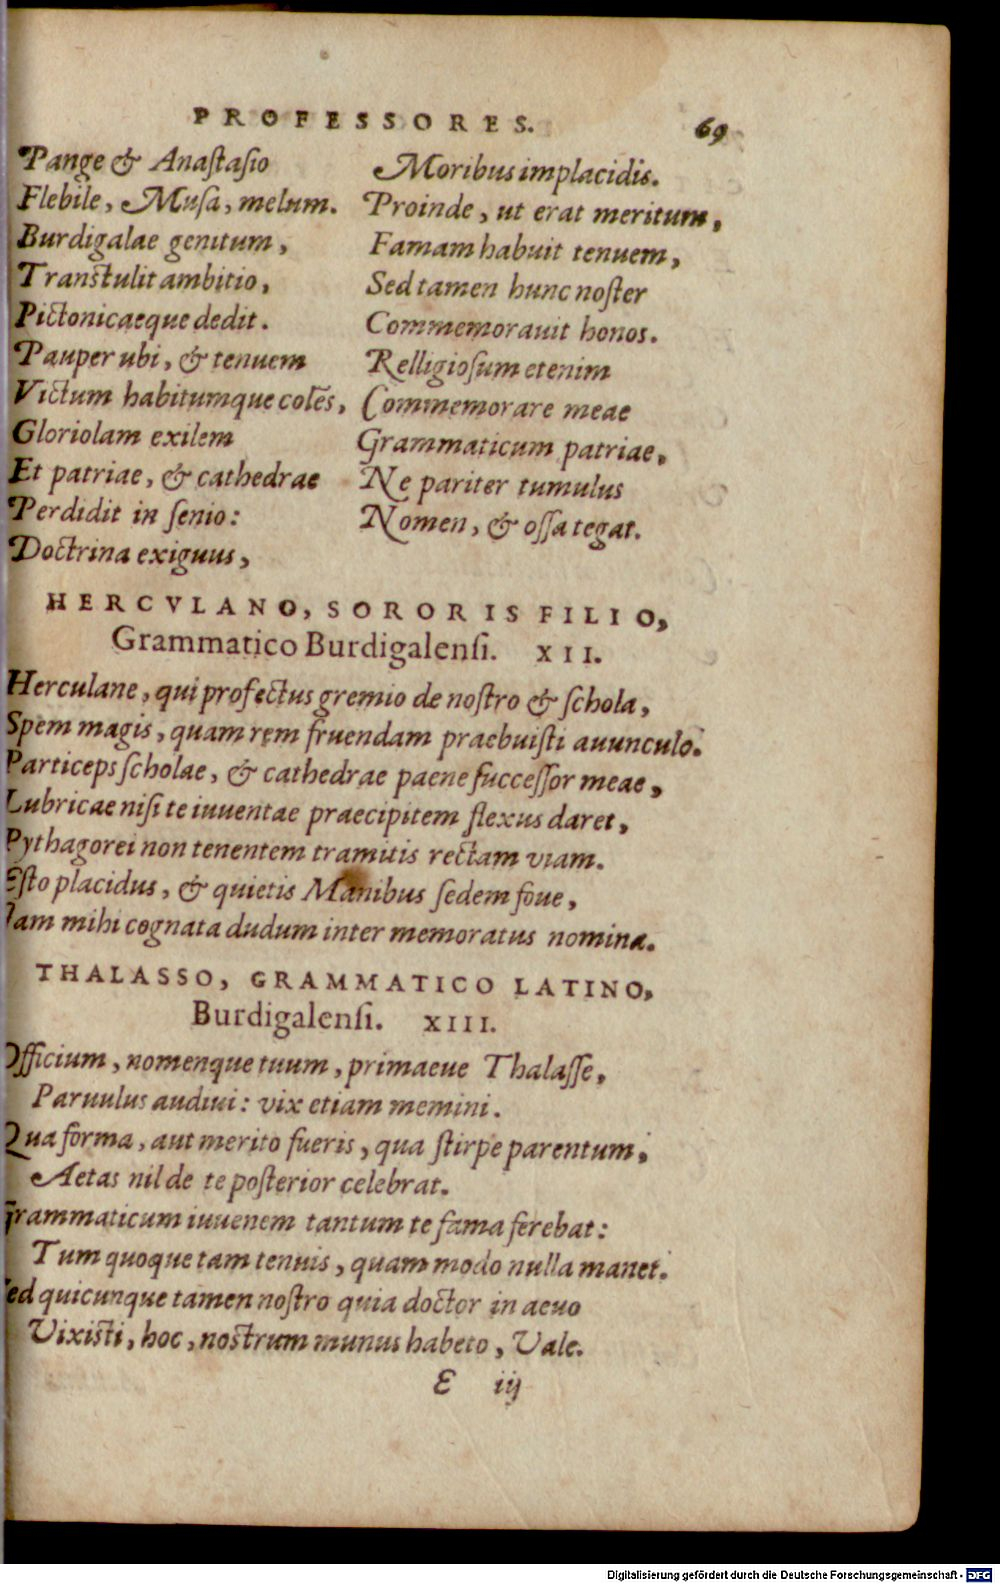 PROFESSORES. 69
Pange & Anastasio
Flebile, Musa, melum.
Burdigalae genitum,
Transtulit ambitio,
Pictonicaeque dedit.
Pauper ubi, & tenuem
Victum habitumque colēs,
Gloriolam exilem
Et patriae, & cathedrae
Perdidit in senio:
Doctrina exiguus,
Moribus implacidis.
Proinde, ut erat meritum,
Famam habuit tenuem,
Sed tamen hunc noster
Commemorauit honos.
Relligiosum etenim
Commemorare meae
Grammaticum patriae,
Ne pariter tumulus
Nomen, & ossa tegat.
HERCVLANO, SORORIS FILIO,
Grammatico Burdigalensi. XII.
Herculane, qui profectus gremio de nostro & schola,
Spem magis, quam rem fruendam praebuisti auunculo.
Particeps scholae, & cathedrae paene successor meae,
Lubricae nisi te iuuentae praecipitem flexus daret,
Pythagorei non tenentem tramitis rectam viam.
Esto placidus, & quietis Manibus sedem foue,
Iam mihi cognata dudum inter memoratus nomina.
THALASSO, GRAMMATICO LATINO,
Burdigalensi. XIII.
Officium, nomenque tuum, primaeue Thalasse,
Paruulus audiui: vix etiam memini.
Qua forma, aut merito fueris, qua stirpe parentum,
Aetas nil de te posterior celebrat.
Grammaticum iuuenem tantum te fama ferebat:
Tum quoque tam tenuis, quam modo nulla manet.
Sed quicunque tamen nostro quia doctor in aeuo
Vixisti, hoc, nostrum munus habeto, Vale.
E iij
Digitalisierung gefördert durch die Deutsche Forschungsgemeinschaft - DFG